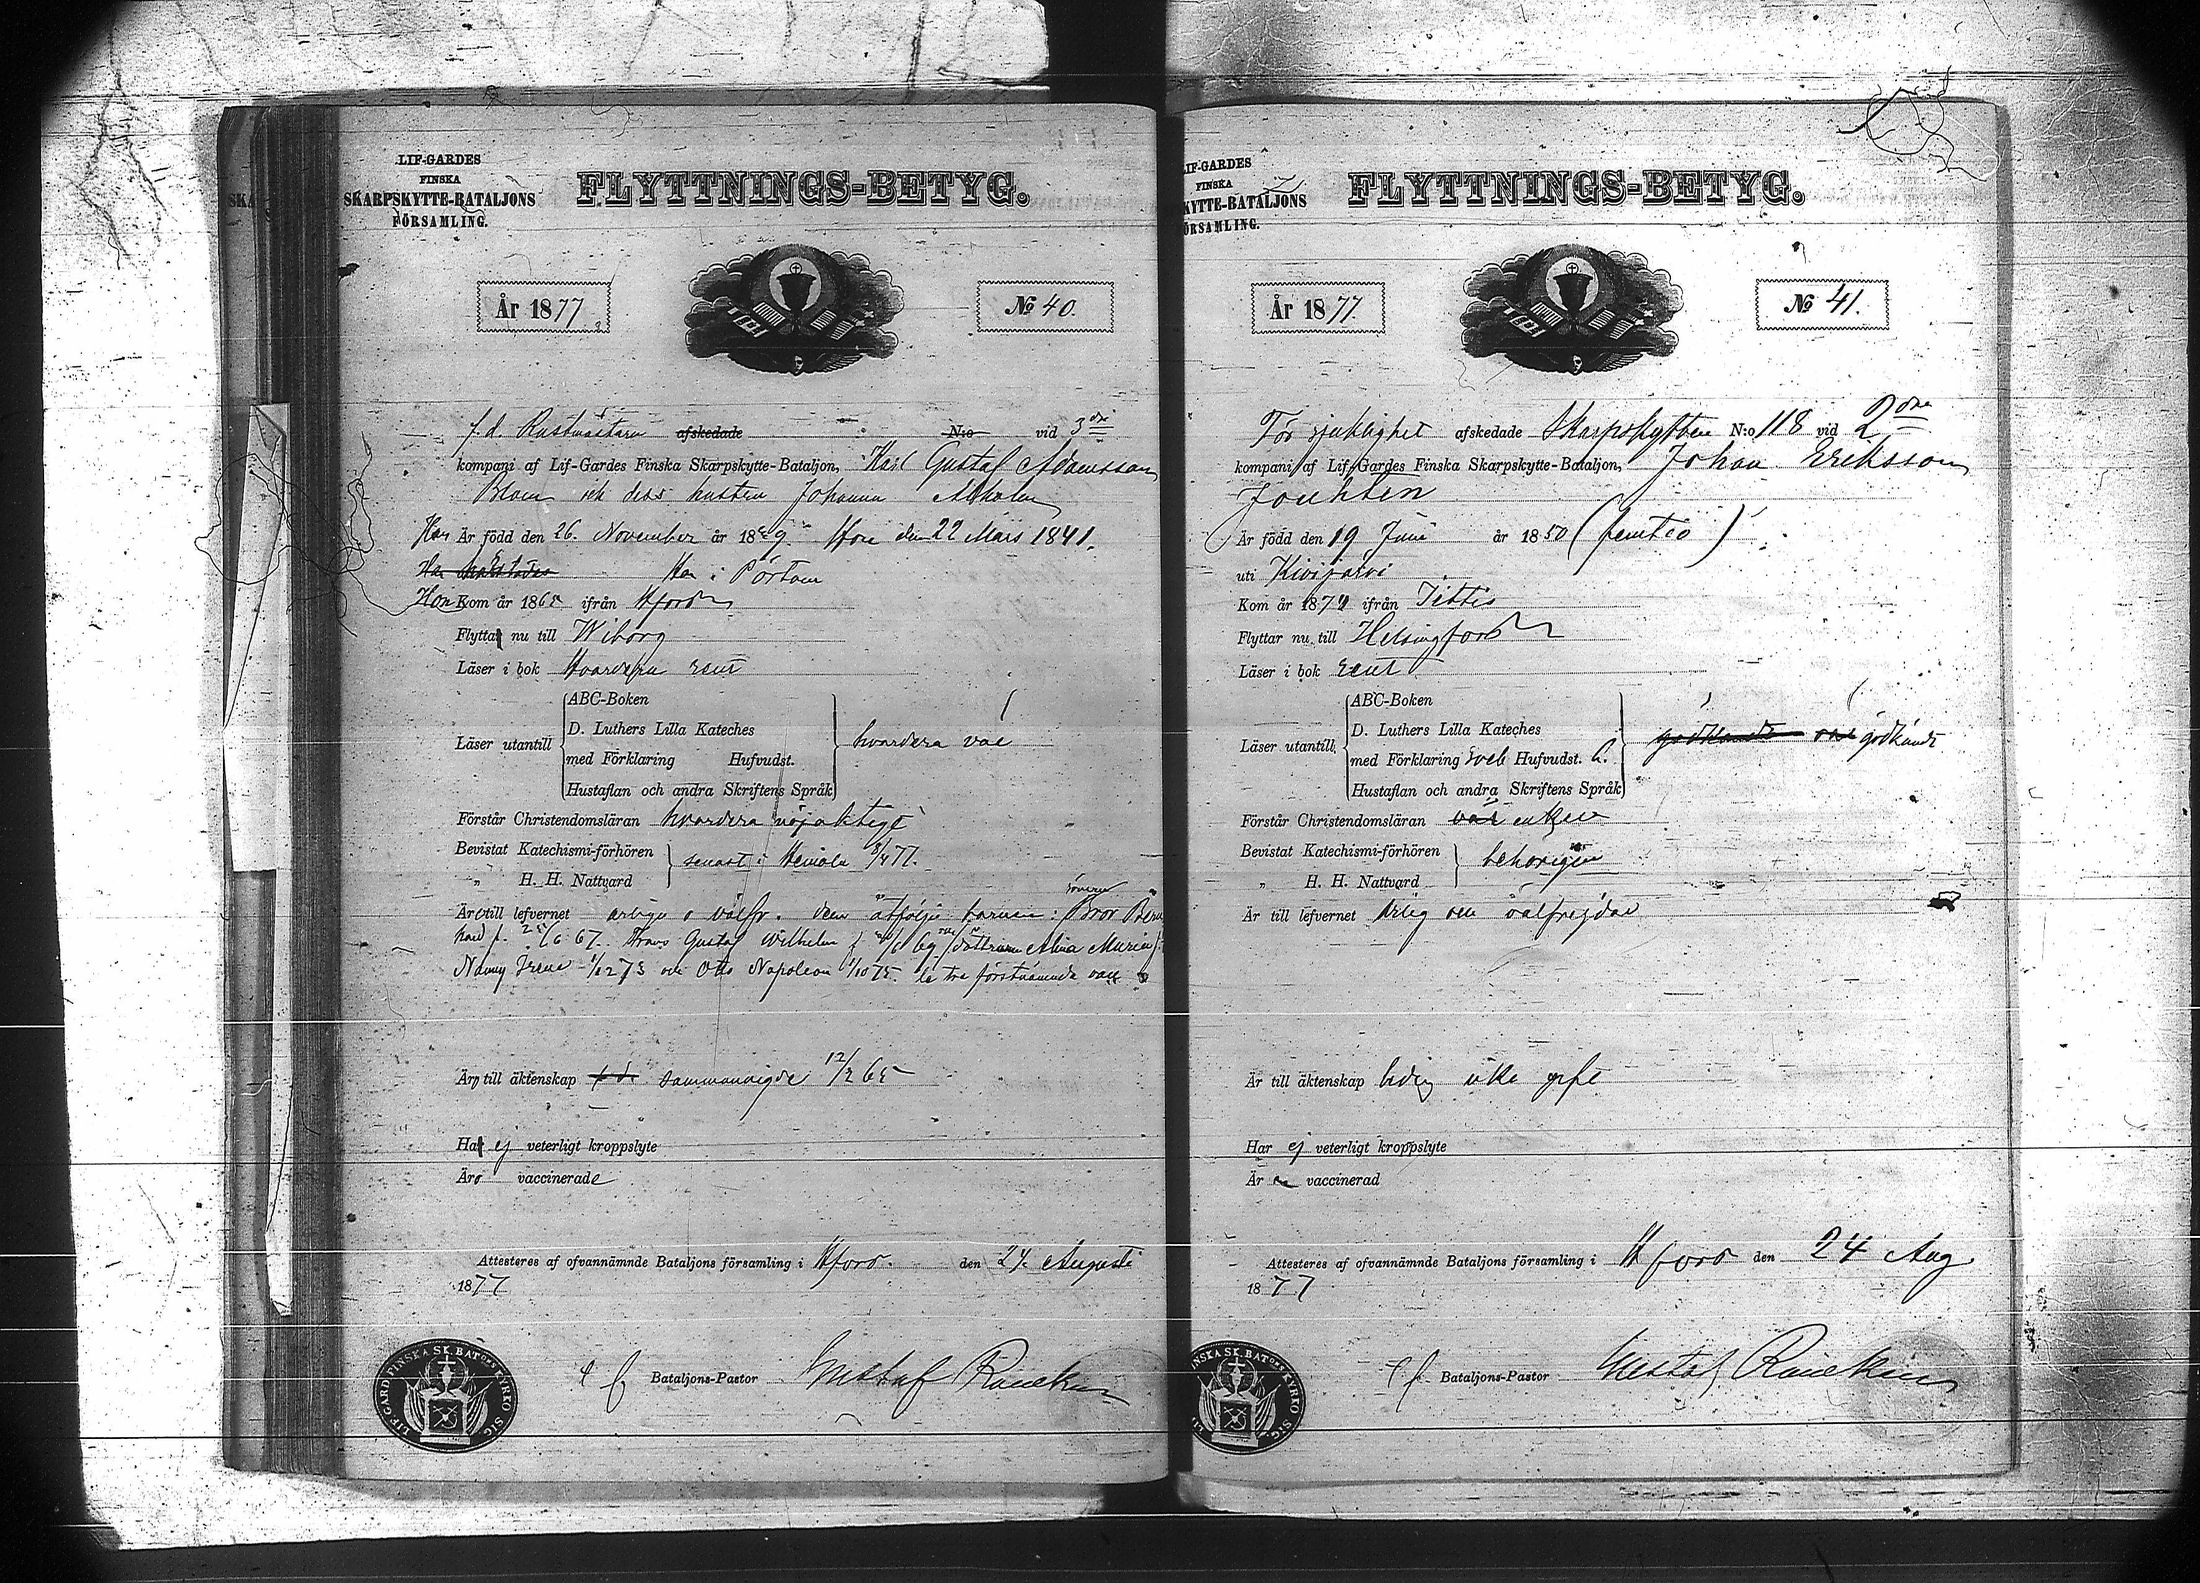 LIF-GARDES
FINSKA
SKARPSKYTTE-BATALJONS
FÖRSAMLING.
FLYTTNINGS-BETYG.
År 1877
№ 40.
f. d. Rustmästaren afskedade N:o vid 3dje
kompani af Lif-Gardes Finska Skarpskytte-Bataljon, Karl Gustaf Adamsson
Blom och dess hustru Johanna
Han Är född den 26. November år 18 9. Hon den 22 Mars 1841.
Han i Pörtom
Hon Kom år 1865 ifrån Hfors
Flytta nu till Wiborg
Läser i bok Hvardera rent
Läser utantill
ABC-Boken
D. Luthers Lilla Kateches
med Förklaring Hufvudst.
Hustaflan och andra Skriftens Språk
hvardera väl
Förstår Christendomsläran hvardera nöjaktigt
Bevistat Katechismi-förhören
„ H. H. Nattvard
senast i Heinola 8/4 77.
Äro till lefvernet ärliga o välfr. dem åtfölja barnen: sönerna Bror Bern
hard f. 25/6 67. Frans Gustaf Wilhelm f. 69 döttrarne Alina Maria
Nanny Irene 1/12 73 och Otto Napoleon 1/10 75. de tre förstnämnda vacc
Äro till äktenskap sammanvigde 12/2 65
Ha ej veterligt kroppslyte
Äro vaccinerade
Attesteras af ofvannämnde Bataljons församling i Hfors. den 24 Augusti
1877
Bataljons-Pastor Gustaf
LIF. GARD. FINSKA SK. BATONS KYRKO SIG.
LIF-GARDES
FINSKA
KYTTE-BATALJONS
ÖRSAMLING.
FLYTTNINGS-BETYG.
År 1877
№ 41.
För sjuklighet afskedade Skarpskytten N:o 118 vid 2dra
kompani af Lif-Gardes Finska Skarpskytte-Bataljon, Johan Eriksson
Är född den 19 Juni år 1850 (femtio)
uti Kivijärvi
Kom år 187 ifrån Jittis
Flyttar nu till Helsingfors
Läser i bok rent
Läser utantill
ABC-Boken
D. Luthers Lilla Kateches
med Förklaring Sveb Hufvudst. 6.
Hustaflan och andra Skriftens Språk
godkändt väl godkändt
Förstår Christendomsläran väl enkelt
Bevistat Katechismi-förhören
„ H. H. Nattvard
behörigen
Är till lefvernet ärlig och välfrejdad
Är till äktenskap ledig icke gift
Har ej veterligt kroppslyte
Är vaccinerad
Attesteras af ofvannämnde Bataljons församling i Hfors den 24 Aug
1877
Bataljons-Pastor Gustaf
NSKA SK. BATONS KYRKO SIG.